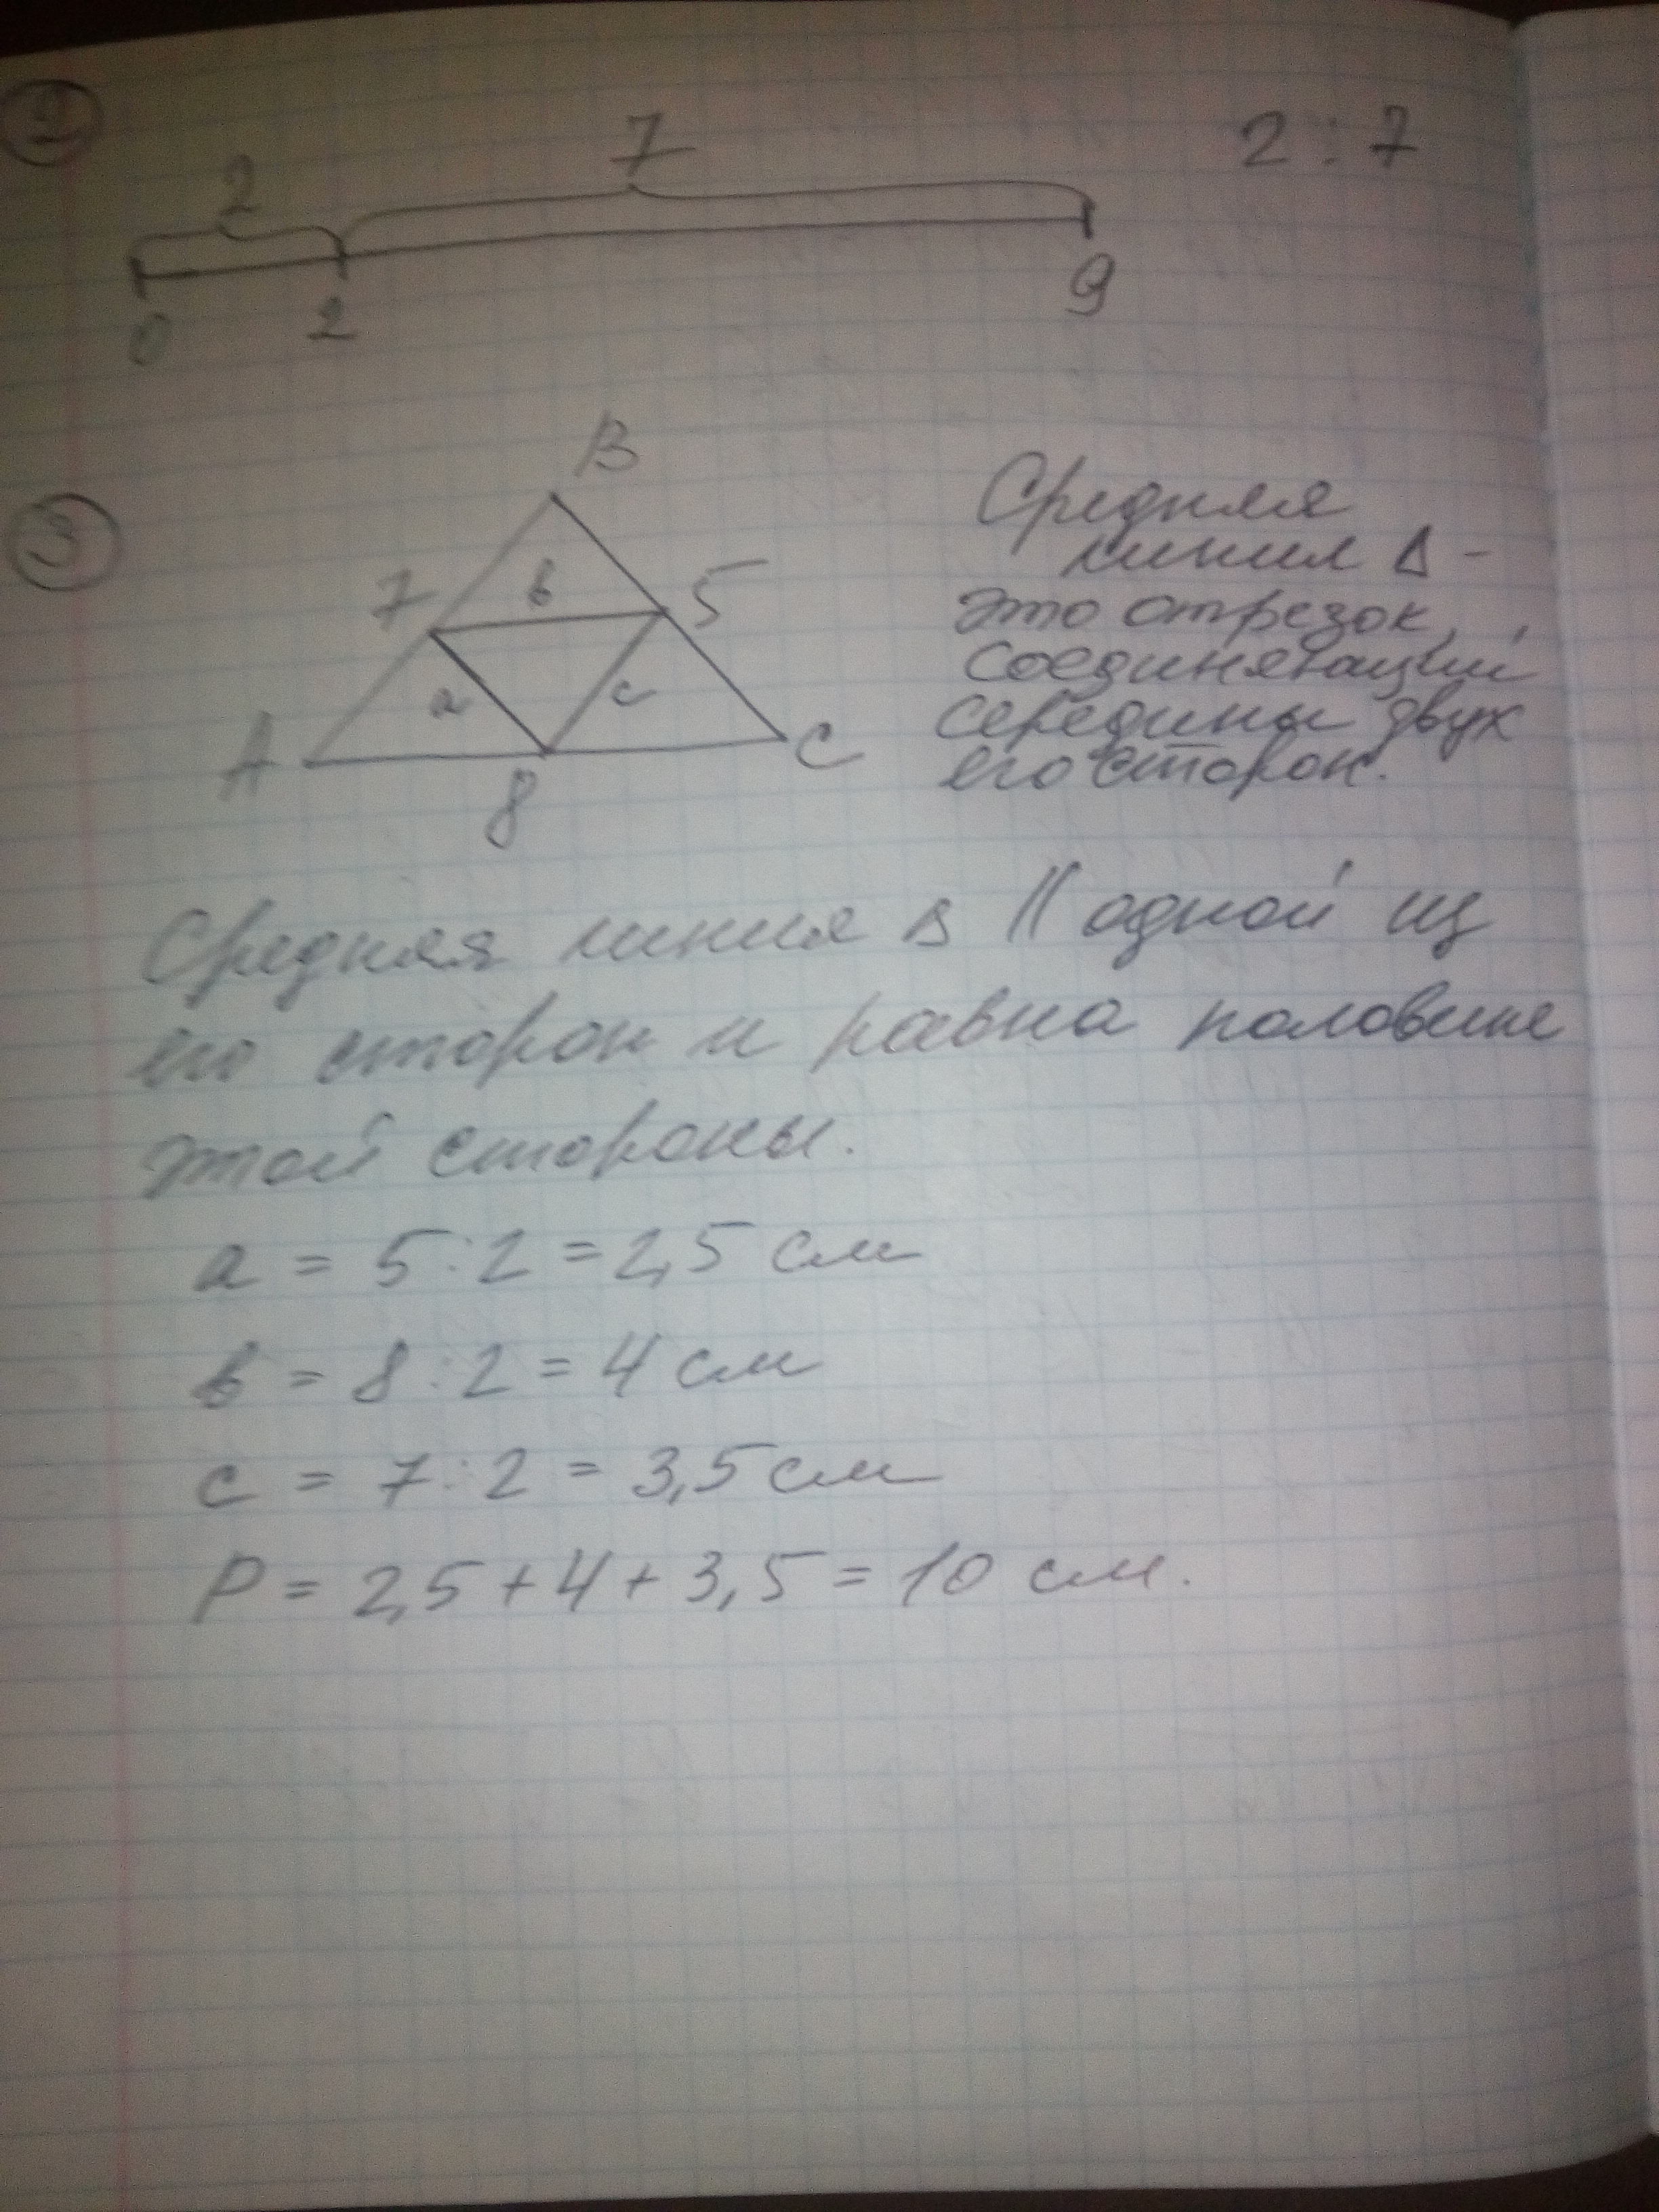 2
7
2 : 7
2
0
2
9
3
B
7
в
5
a
c
A
C
8
Средняя
линия Δ -
это отрезок,
соединяющий
середины двух
его сторон.
Средняя линия Δ || одной из
его сторон и равна половине
этой стороны.
a = 5 : 2 = 2,5 см
в = 8 : 2 = 4 см
c = 7 : 2 = 3,5 см
P = 2,5 + 4 + 3,5 = 10 см.